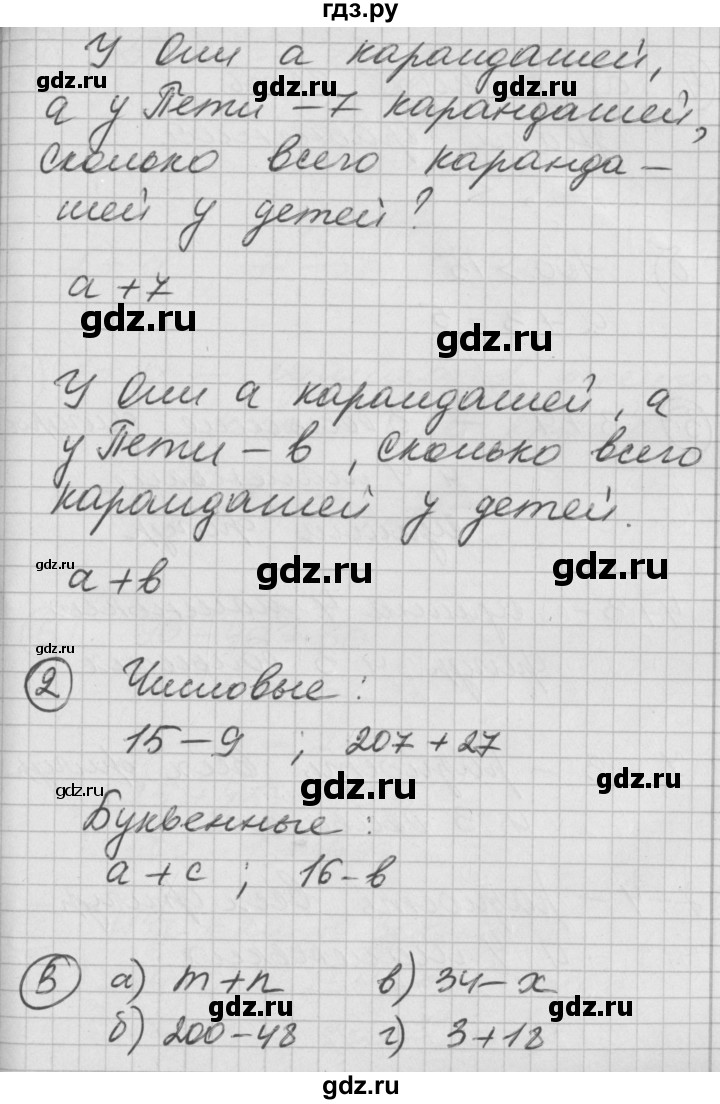 гдз.ру
У Оли а карандашей,
gdz.ru gdz.ru gdz.ru
а у Пети – 7 карандашей,
сколько всего каранда –
шей у детей?
а + 7
gdz.ru gdz.ru
У Оли а карандашей, а
у Пети – в, сколько всего
карандашей у детей.
gdz.ru gdz.ru gdz.ru
а + в
② Числовые:
15 – 9 ; 207 + 27
gdz.ru gdz.ru gdz.ru
Буквенные:
а + с ; 16 - в
⑤ а) m + n в) 34 – x
gdz.ru gdz.ru gdz.ru
б) 200 – 48 г) 3 + 18
gdz.ru